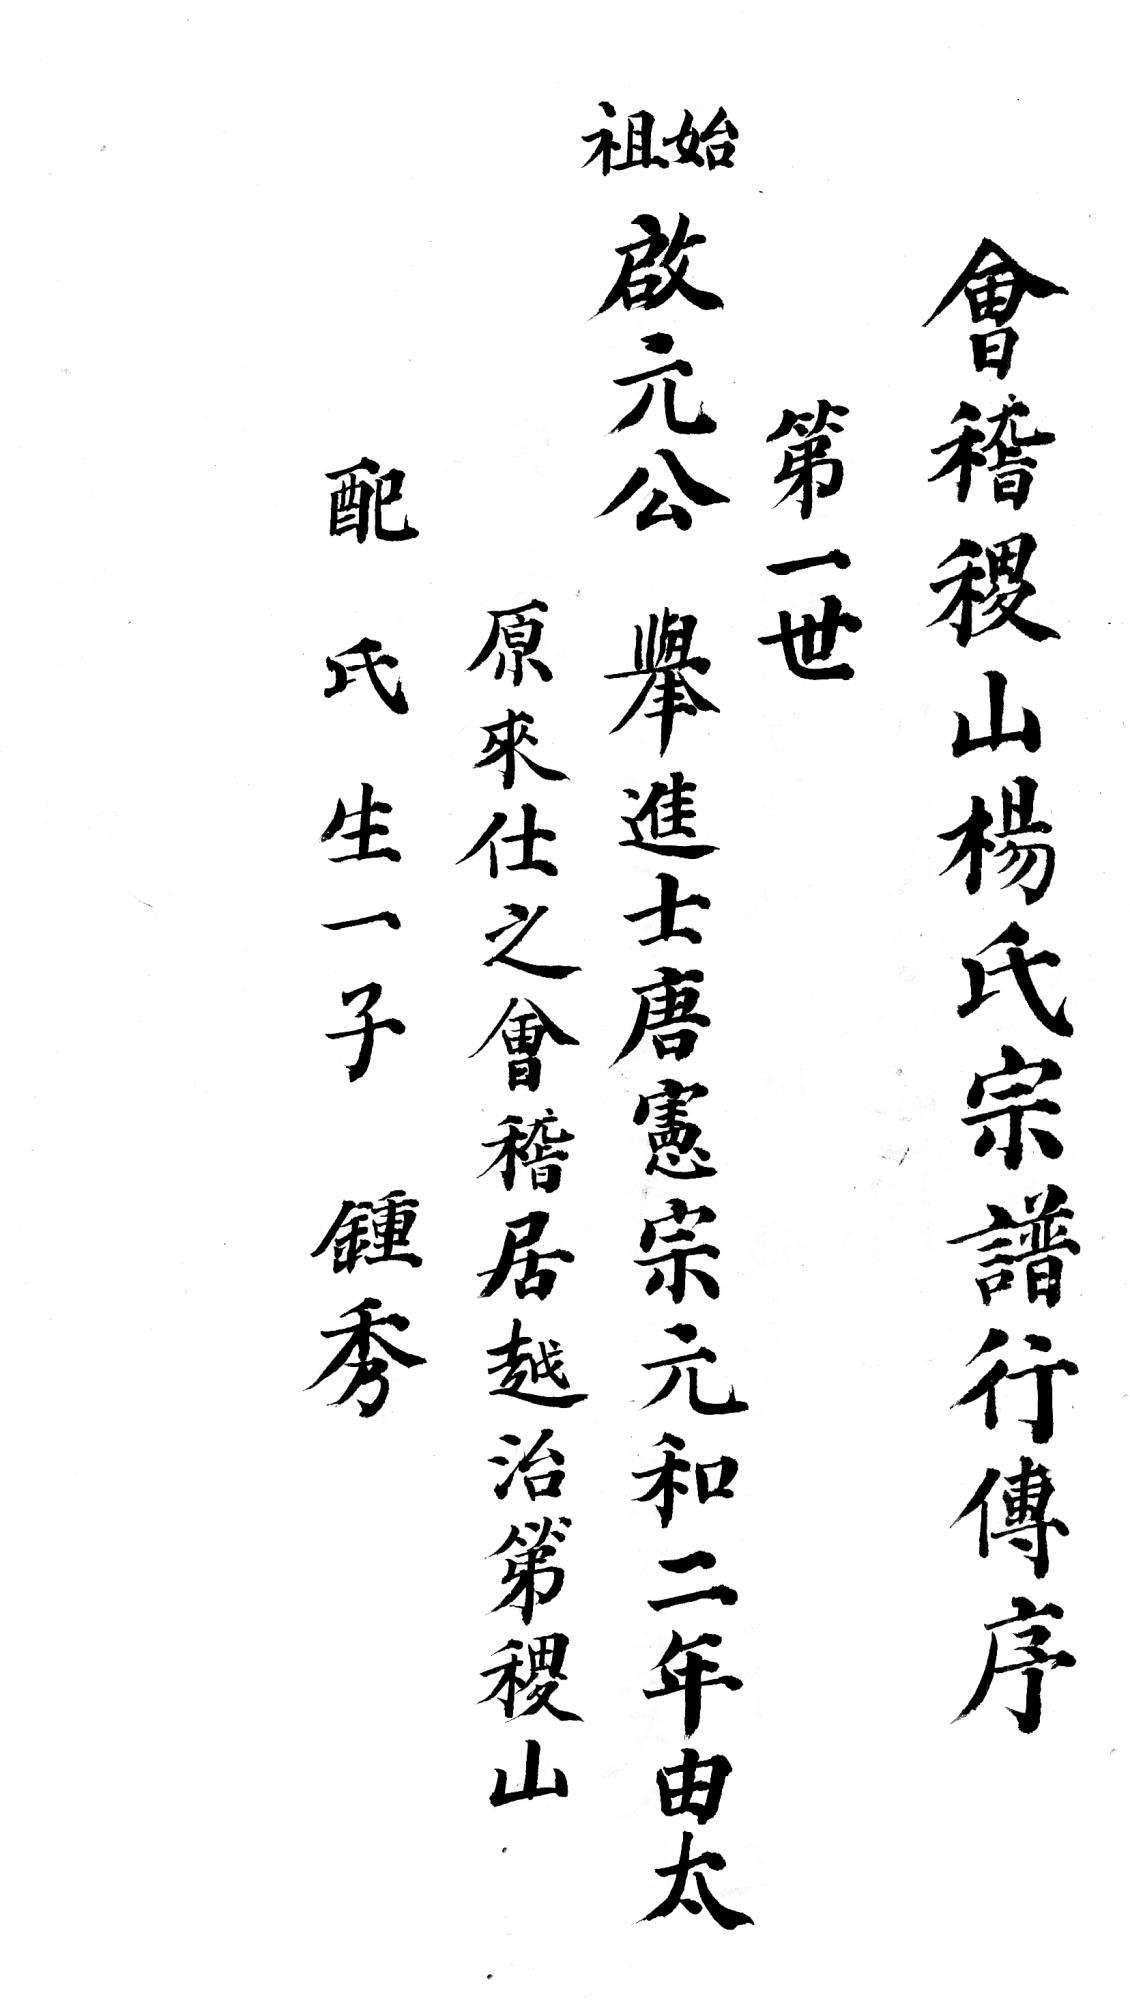 會稽稷山楊氏宗譜行傳序
第一世
始祖 啟元公 舉進士唐憲宗元和二年由太
原來仕之會稽居越治第稷山
配 氏 生一子 鍾秀